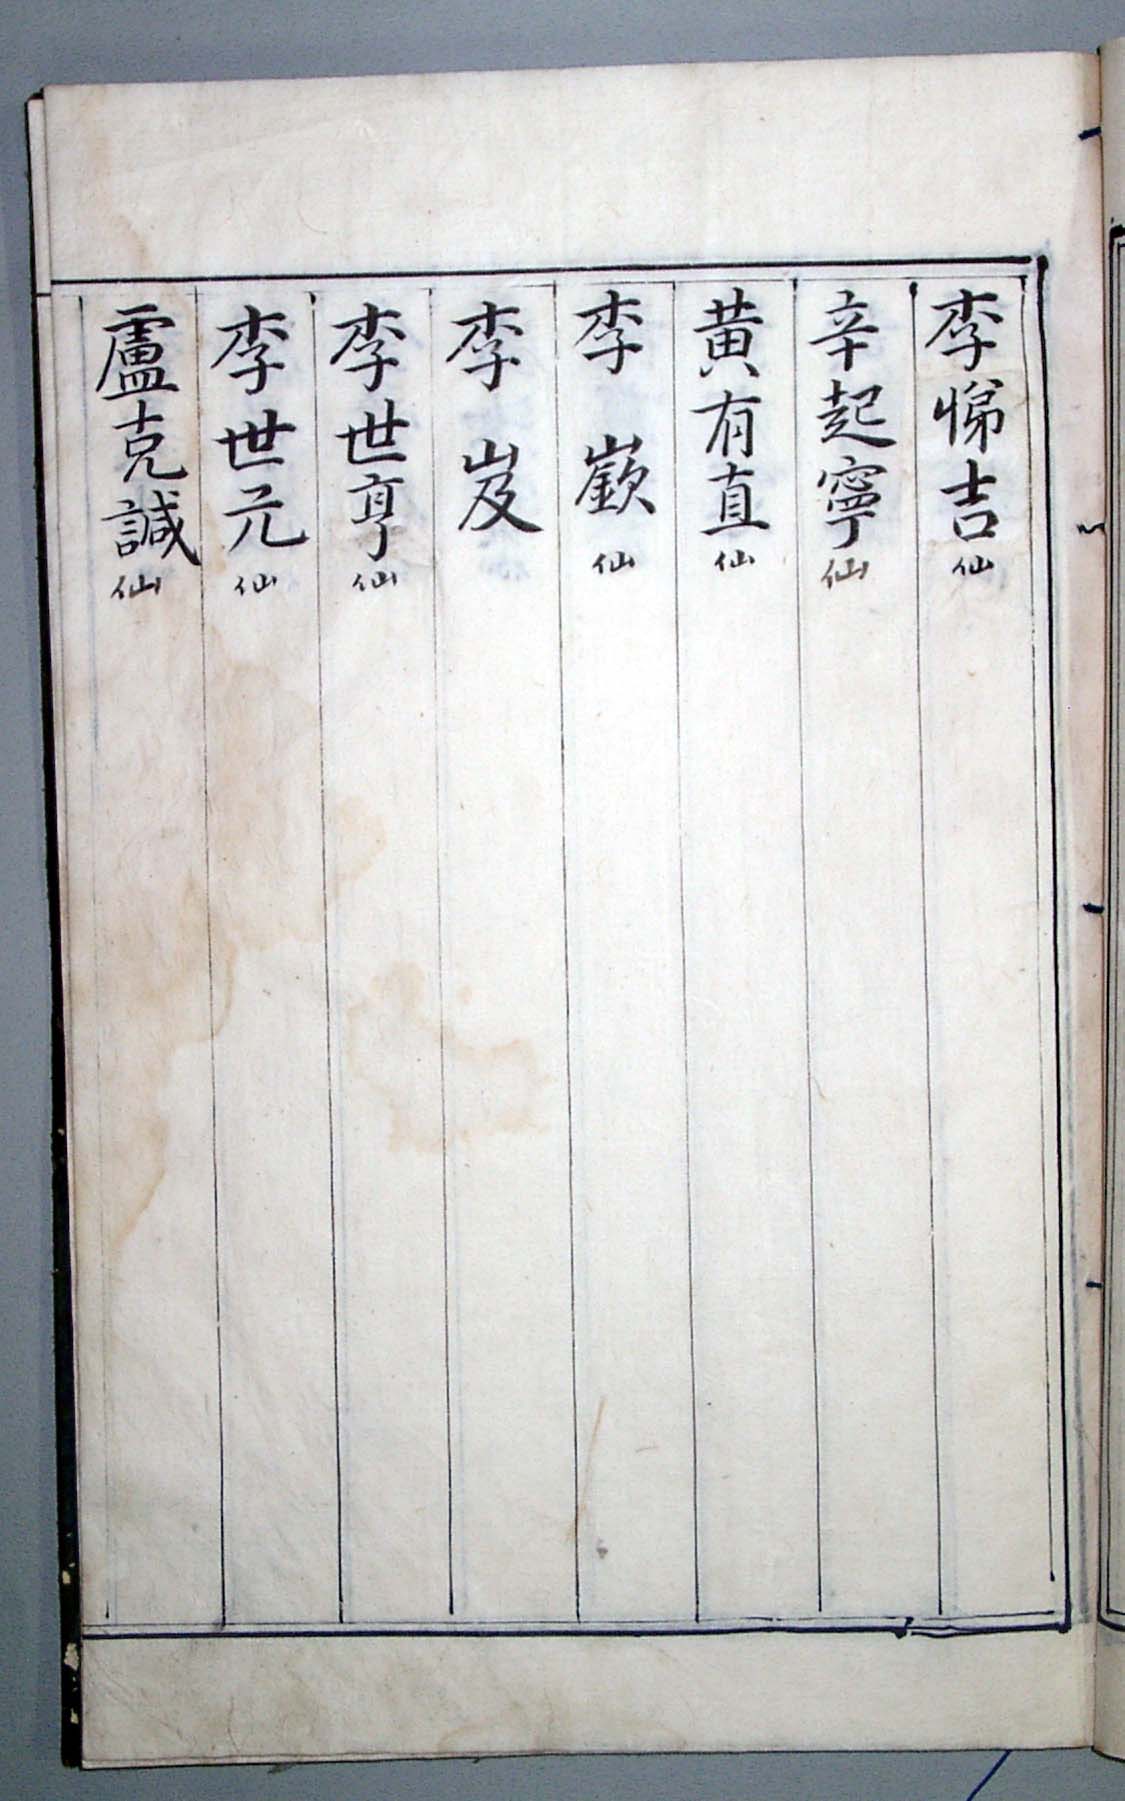 李悌吉仙
辛起寧仙
黃有直仙
李嶔仙
李岌
李世亨仙
李世元仙
盧克諴仙